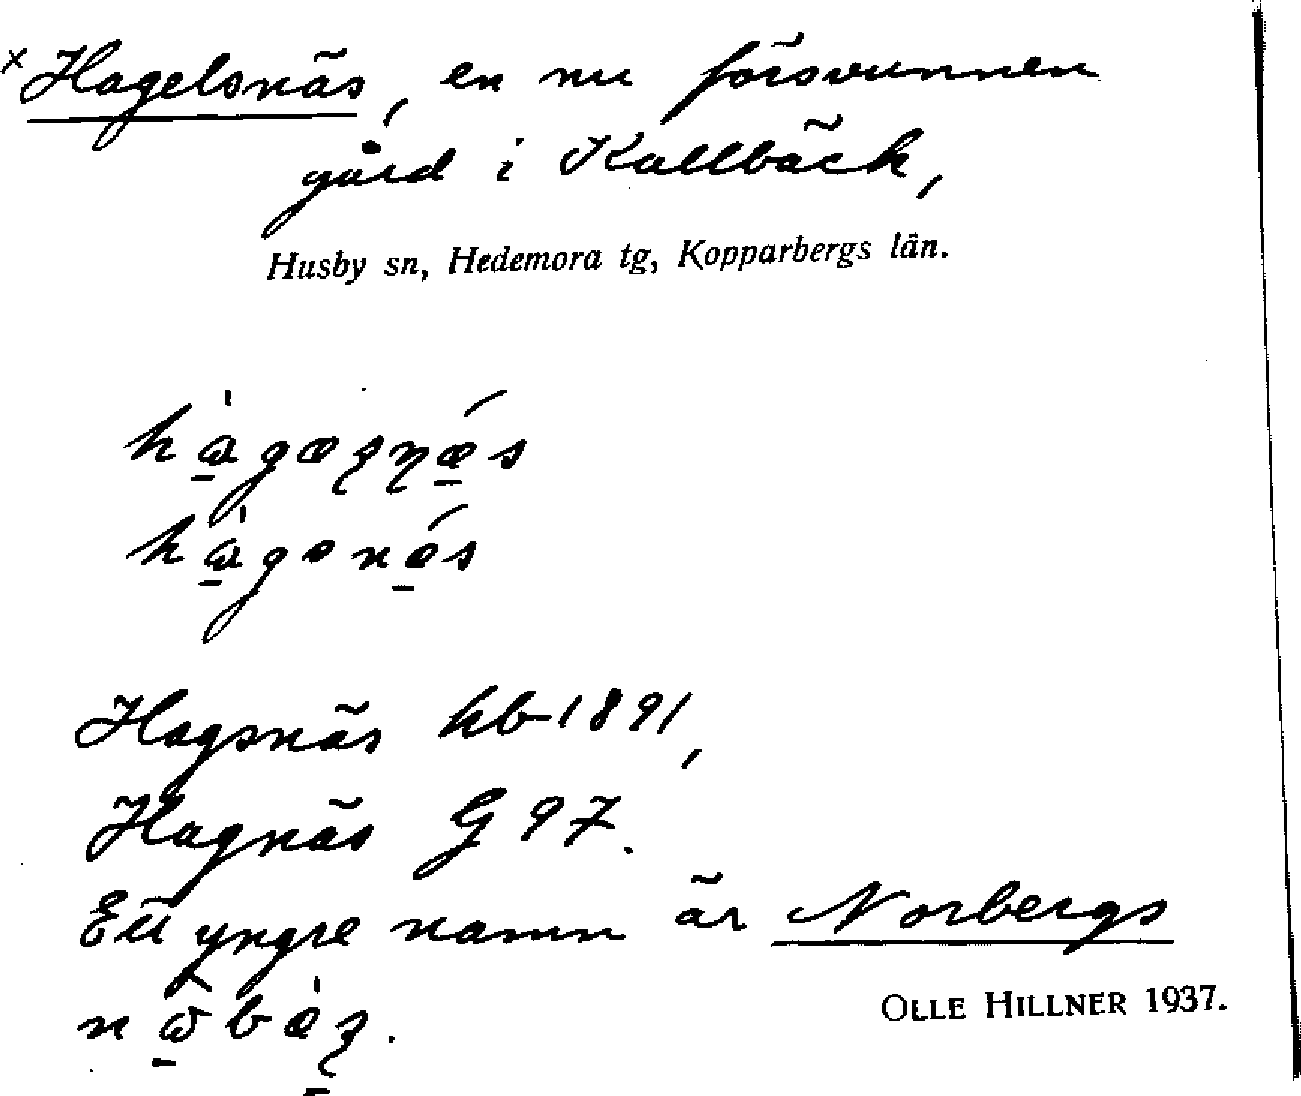 x Hagelsnäs, en nu försvunnen
gård i Kallbäck,
Husby sn, Hedemora tg, Kopparbergs län.
Hagsnäs hb 1891,
Hagnäs G 97.
Ett yngre namn är Norbergs
OLLE HILLNER 1937.